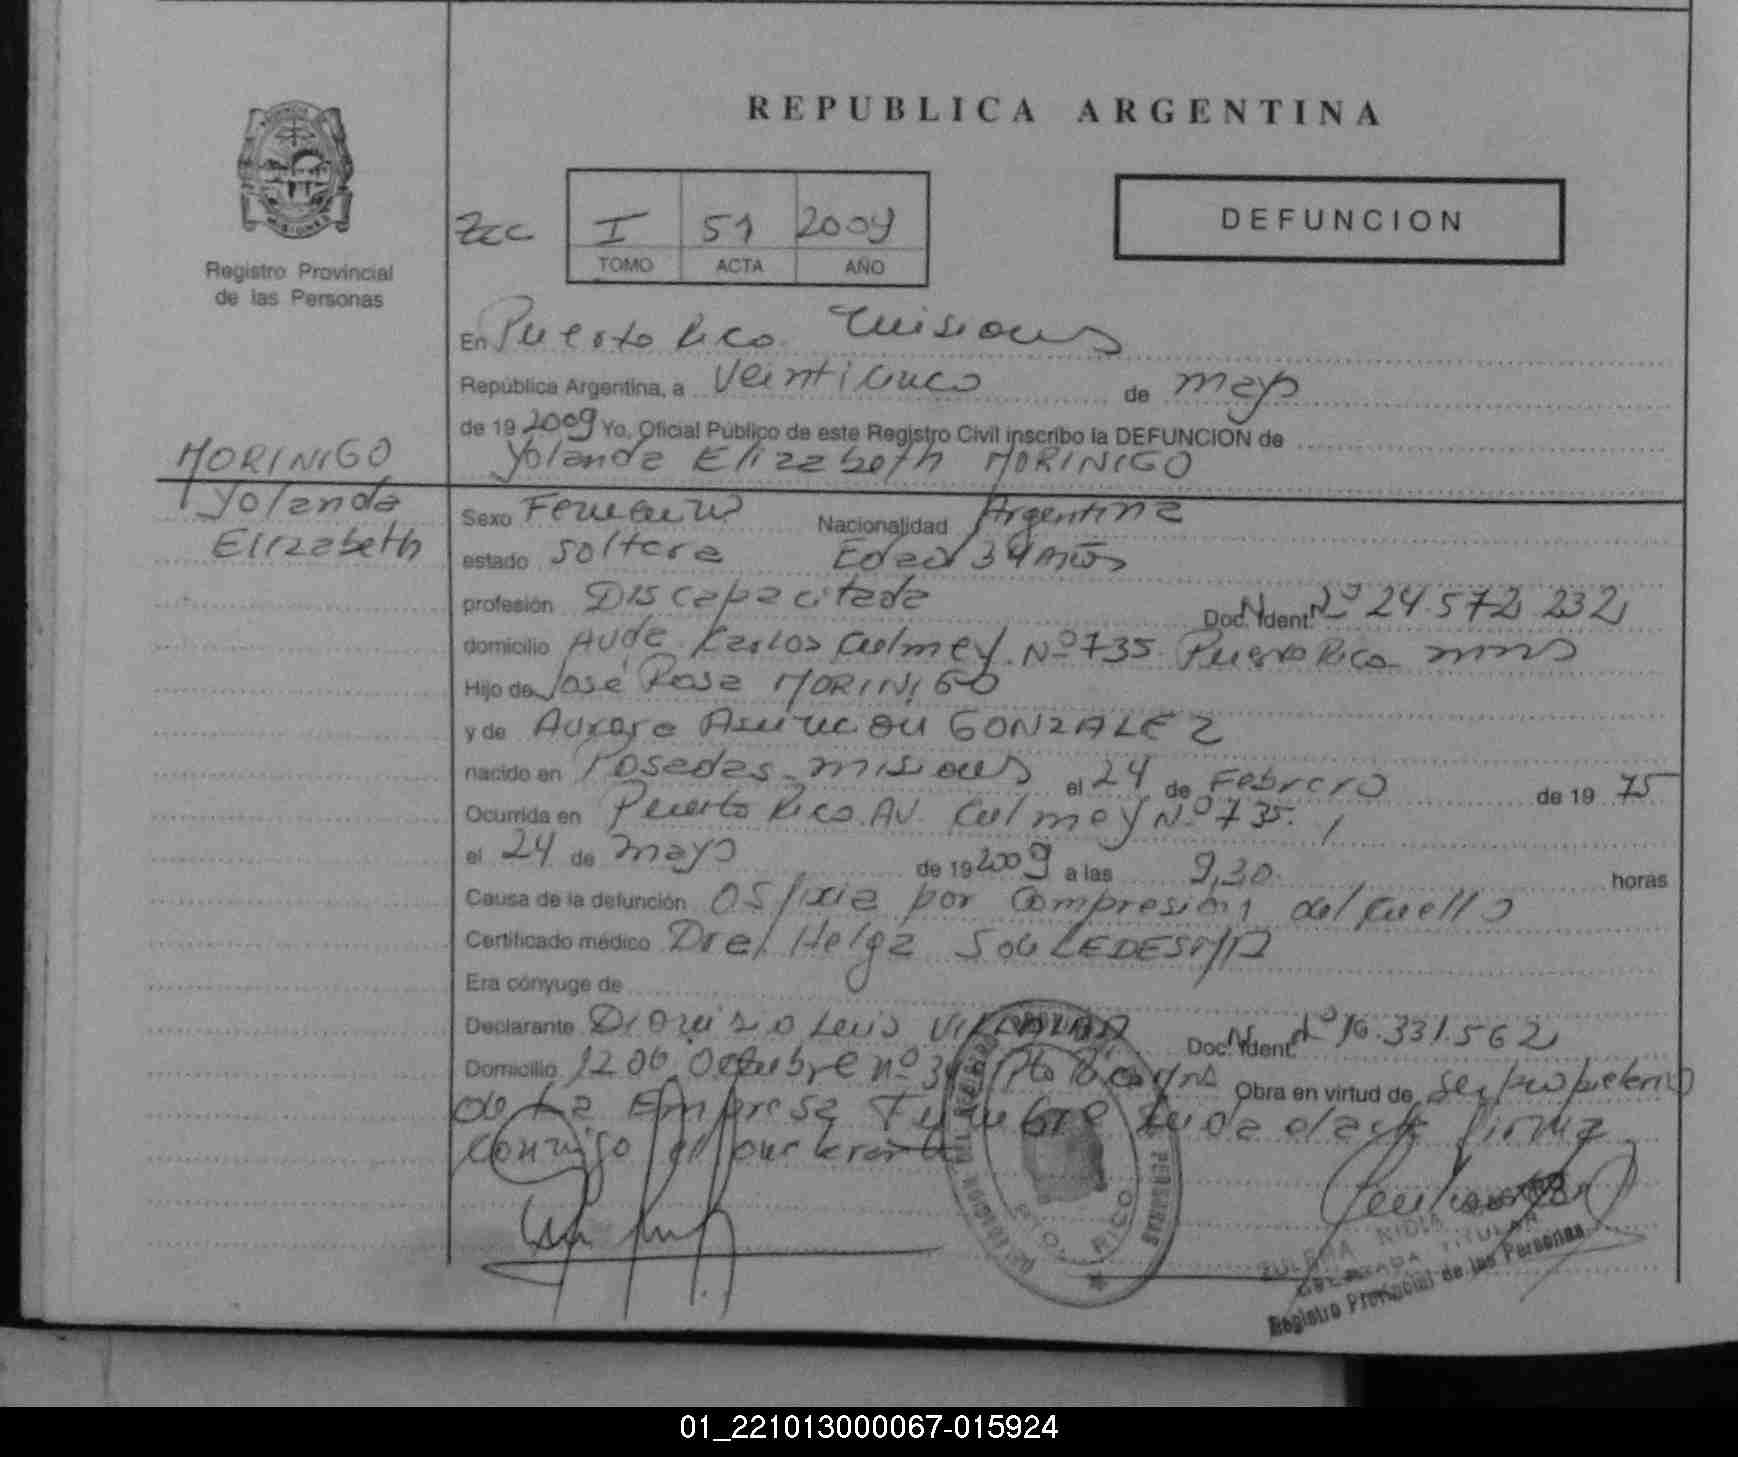 REPUBLICA ARGENTINA
I 51 2009
TOMO ACTA AÑO
DEFUNCION
Registro Provincial
de las Personas
En Puerto Rico Misiones
República Argentina, a Veinticinco de mayo
de 19 2009 Yo, Oficial Público de este Registro Civil inscribo la DEFUNCION de
Yolanda Elizabeth MORINIGO
MORINIGO
Yolanda
Elizabeth
Sexo Femenino Nacionalidad Argentina
estado soltera Edad 34 Años
profesión Discapacitada Doc. Ident. Nº 24.572.232
domicilio Avda. Karlos Culmey Nº 735 Puerto Rico mnes
Hijo de José Rosa MORINIGO
y de Aurora Asuncion GONZALEZ
nacido en Posadas-misiones el 24 de Febrero de 19 75
Ocurrida en Puerto Rico. AV. Culmey Nº 735.
el 24 de mayo de 19 2009 a las 9,30 horas
Causa de la defunción Asfixia por Compresion del Cuello
Certificado médico Dra. Helga LEDESMA
Era cónyuge de
Declarante Dionisio Luis Doc. Ident. Nº 16.331.562
Domicilio 12 de Octubre nº Pto Rico Mns Obra en virtud de ser propietario
de La Empresa Funebre Leida el acta firma
Conmigo el
PTO. RICO
ZULEMA NIDIA
DELEGADA TITULAR
Registro Provincial de las Personas
01_221013000067-015924